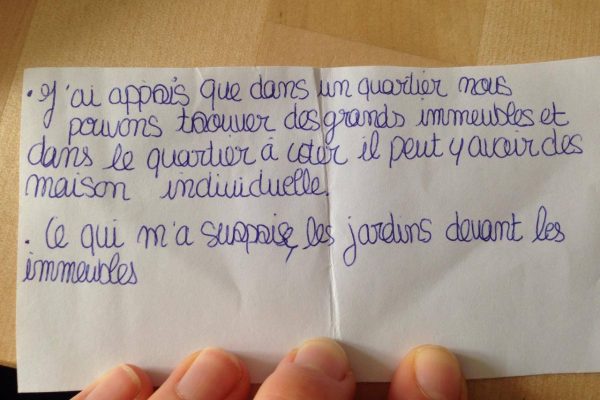 . J'ai appris que dans un quartier nous
pouvons trouver des grands immeubles et
dans le quartier à coter il peut y avoir des
maison individuelle.
. Ce qui m'a surprise, les jardins devant les
immeubles